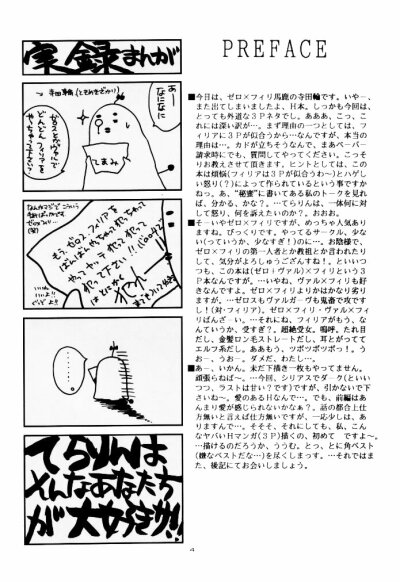 実録まんが
PREFACE
寺田輪
あー
なになに
てまみ
■今日は、ゼロ×フィリ馬鹿の寺田輪です。いやー、
また出てしまいましたよ、H本。しっかも今回は、
とっても外道な3Pネタでし。あああ、こっ、こ
れには深い訳が…。まず理由の一つとしては、フ
ィリアに3Pが似合うから…なんですが、本当の
理由は…。カドが立ちそうなんで、まあペーパー
請求時にでも、質問してやってください。こっそ
りお教えさせて頂きます。ヒントとしては、この
本は煩悩(フィリアは3Pが似合うわ〜)とハゲし
い怒り(?)によって作られているという事ですか
ねっ。あ、“秘蜜”に書いてある私のトークを見れ
ば、分かる、かな？。…てらりんは、一体何に対
して怒り、何を訴えたいのか？。おおお。
■そーいやゼロ×フィリですが、めっちゃ人気あり
ますね。びっくりです。やってるサークル、少な
い(っていうか、少なすぎ！)のに…。お陰様で、
ゼロ×フィリの第一人者とか教祖とか言われたり
して、気分がよろしゅうございますね！。といいつ
つも、この本は(ゼロ+ヴァル)×フィリという3
P本なんですが。…いやね、ヴァル×フィリも好
きなんですよ。ゼロ×フィリよりかはかなり劣り
ますが。…ゼロスもヴァルガーヴも鬼畜で攻です
し！(対・フィリア)。ゼロ×フィリ・ヴァル×フィ
リばんざーい。…それにね、フィリアがもう、な
んていうか、受すぎ？。超絶愛女。嗚呼。たれ目
だし、金髪ロン毛ストレートだし、耳とがってて
エルフ系だし。ああもう、ツボツボツボっ！。う
おー、うおー。ダメだ、わたし…。
■あー、いかん。未だ下描き一枚もやってません。
頑張らねば〜。…今回、シリアスでダーク(といい
つつ、ラストは甘い？です)ですが、引かないで下
さいね〜。愛のあるHなんで…。でも、前編はあ
んまり愛が感じられないかなぁ？。話の都合上仕
方無いと言えば仕方無いですが、一応少しは、あ
りますんで…。そそそ、それにしても、私、こん
なヤバいHマンガ(3P)描くの、初めて　ですよ〜。
…描けるのだろうか、ううむ。とっ、とに角ベスト
(嫌なベストだな…)を尽くしまっす。…それではま
た、後記にてお会いしましょう。
てらりんは
そんなあなたたち
が大好きサ!!